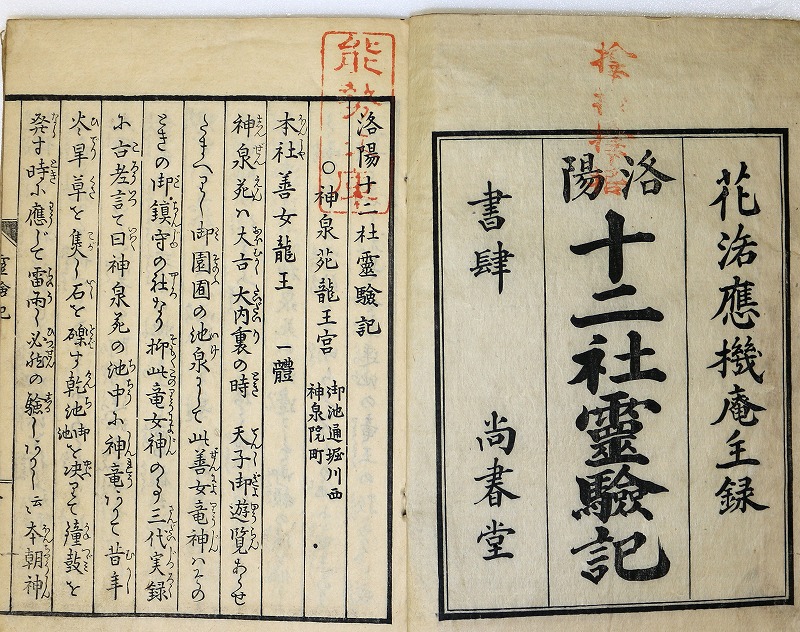 花洛應機庵主録
洛陽
十二社靈驗記
書肆 尚書堂
洛陽十二社靈驗記
○神泉苑龍王宮
御池通堀川西
神泉院町
本社善女龍王 一體
神泉苑ハ大古大内裏の時 天子御遊覧あらせ
たまへりし御園囿の池泉にして此善女竜神ハその
ときの御鎮守の社なり抑此竜女神の事三代実録
に古老言て曰神泉苑の池中に神竜ありて昔年
炎旱草を焦し石を礫す乾池御池を决りて鐘鼓を
発す時に應じて雷雨し必然の驗しありし云云本朝神
靈驗記